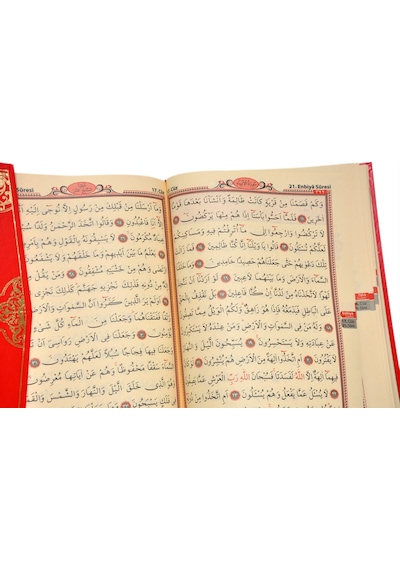 21. Enbiyâ Sûresi
17. Cüz
وَكَمْ قَصَمْنَا مِنْ قَرْيَةٍ كَانَتْ ظَالِمَةً وَاَنْشَأْنَا بَعْدَهَا قَوْمًا
اٰخَرِينَ ﴿١١﴾ فَلَمَّا اَحَسُّوا بَأْسَنَا اِذَا هُمْ مِنْهَا يَرْكُضُونَ ﴿١٢﴾
لَا تَرْكُضُوا وَارْجِعُوا اِلٰى مَا اُتْرِفْتُمْ فِيهِ وَمَسَاكِنِكُمْ
لَعَلَّكُمْ تُسْـَٔلُونَ ﴿١٣﴾ قَالُوا يَا وَيْلَنَا اِنَّا كُنَّا ظَالِمِينَ ﴿١٤﴾ فَمَا زَالَتْ
تِلْكَ دَعْوٰيهُمْ حَتّٰى جَعَلْنَاهُمْ حَصِيدًا خَامِدِينَ ﴿١٥﴾ وَمَا خَلَقْنَا
السَّمَاءَ وَالْاَرْضَ وَمَا بَيْنَهُمَا لَاعِبِينَ ﴿١٦﴾ لَوْ اَرَدْنَا اَنْ نَتَّخِذَ
لَهْوًا لَاتَّخَذْنَاهُ مِنْ لَدُنَّا اِنْ كُنَّا فَاعِلِينَ ﴿١٧﴾ بَلْ نَقْذِفُ
بِالْحَقِّ عَلَى الْبَاطِلِ فَيَدْمَغُهُ فَاِذَا هُوَ زَاهِقٌ وَلَكُمُ الْوَيْلُ مِمَّا تَصِفُونَ
﴿١٨﴾ وَلَهُ مَنْ فِي السَّمٰوَاتِ وَالْاَرْضِ وَمَنْ عِنْدَهُ لَا يَسْتَكْبِرُونَ
عَنْ عِبَادَتِهِ وَلَا يَسْتَحْسِرُونَ ﴿١٩﴾ يُسَبِّحُونَ الَّيْلَ وَالنَّهَارَ لَا يَفْتُرُونَ
﴿٢٠﴾ اَمِ اتَّخَذُوا اٰلِهَةً مِنَ الْاَرْضِ هُمْ يُنْشِرُونَ ﴿٢١﴾ لَوْ كَانَ
فِيهِمَا اٰلِهَةٌ اِلَّا اللّٰهُ لَفَسَدَتَا فَسُبْحَانَ اللّٰهِ رَبِّ الْعَرْشِ عَمَّا يَصِفُونَ
﴿٢٢﴾ لَا يُسْـَٔلُ عَمَّا يَفْعَلُ وَهُمْ يُسْـَٔلُونَ ﴿٢٣﴾ اَمِ اتَّخَذُوا مِنْ
17. Cüz
Sûresi
وَمَا اَرْسَلْنَا مِنْ قَبْلِكَ مِنْ رَسُولٍ اِلَّا نُوحِي اِلَيْهِ
اَنَا فَاعْبُدُونِ ﴿٢٥﴾ وَقَالُوا اتَّخَذَ الرَّحْمٰنُ
مُكْرَمُونَ ﴿٢٦﴾ لَا يَسْبِقُونَهُ بِالْقَوْلِ وَهُمْ
يَعْلَمُ مَا بَيْنَ اَيْدِيهِمْ وَمَا خَلْفَهُمْ وَلَا
وَهُمْ مِنْ خَشْيَتِهِ مُشْفِقُونَ ﴿٢٨﴾ وَمَنْ يَقُلْ
دُونِهِ فَذٰلِكَ نَجْزِيهِ جَهَنَّمَ كَذٰلِكَ نَجْزِي
الَّذِينَ كَفَرُوا اَنَّ السَّمٰوَاتِ وَالْاَرْضَ
وَجَعَلْنَا مِنَ الْمَاءِ كُلَّ شَيْءٍ
وَجَعَلْنَا فِي الْاَرْضِ رَوَاسِيَ اَنْ
فِيهَا فِجَاجًا سُبُلًا لَعَلَّهُمْ يَهْتَدُونَ ﴿٣١﴾
سَقْفًا مَحْفُوظًا وَهُمْ عَنْ اٰيَاتِهَا مُعْرِضُونَ
الَّذِي خَلَقَ الَّيْلَ وَالنَّهَارَ وَالشَّمْسَ وَالْقَمَرَ
فِي فَلَكٍ يَسْبَحُونَ ﴿٣٣﴾